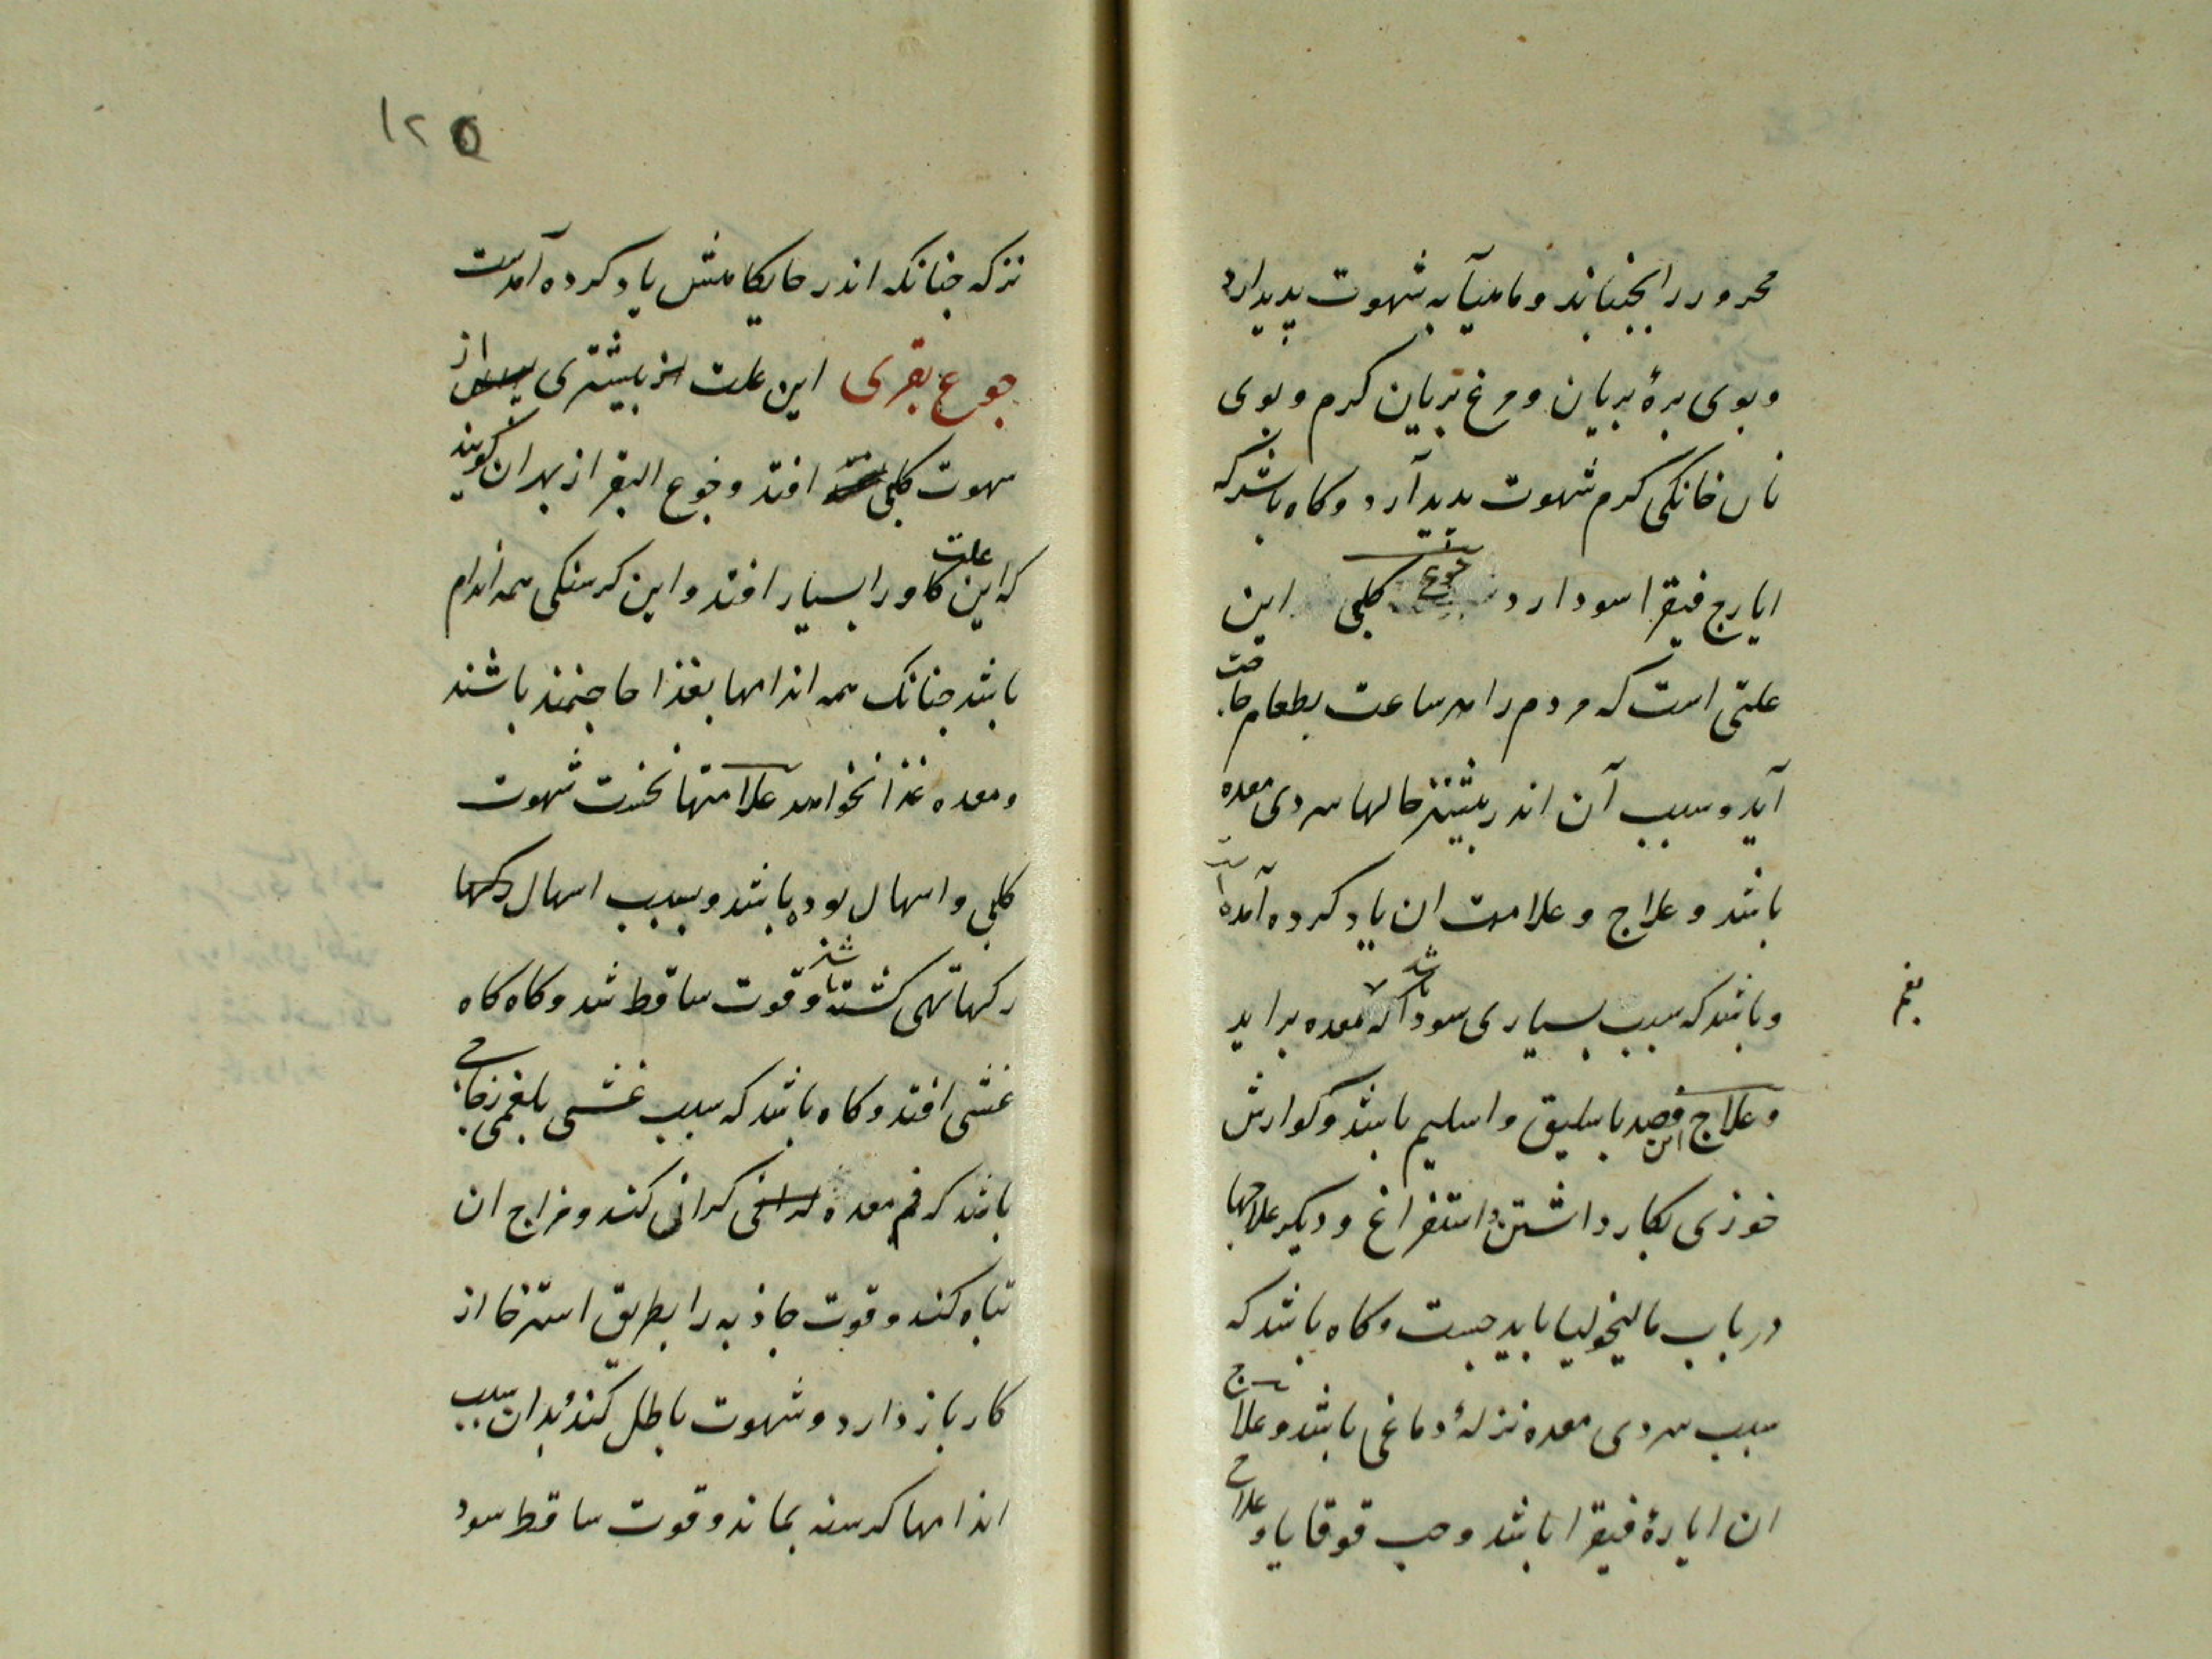 محرور را بجنباند و ماهیآبه شهوت پدید ارد
و بوی برهٔ بریان و مرغ بریان کرم و بوی
نان خانکی کرم شهوت بدید آرد و کاه باشد که
ایارج فیقرا سود دارد جوع کلبی این
علتی است که مردم را هر ساعت بطعام حاجت
آید و سبب آن اندر بیشتر حالها سردی معده
باشد و علاج و علامت ان یاد کرده آمده است
و باشد که سبب بسیاری سودا باشد که بمعده براید
بفم
و علاج این فصد باسلیق و اسلیم باشد و کوارش
خوزی بکار داشتن و استفراغ و دیکر علاجها
در باب مالیخولیا باید جست و کاه باشد که
سبب سردی معده نزلهٔ دماغی باشد و علاج
ان ایارهٔ فیقرا باشد و حب قوقایا و علاج
۱۲۵
نزله جنانکه اندر جایکاهش یاد کرده آمدست
جوع بقری این علت بیشتری از بس
شهوت کلبی افتد و جوع البقر از بهر ان کویند
که این علت کاو را بسیار افتد و این کرسنکی همه اندام
باشد جنانک همه اندامها بغذا حاجتمند باشند
و معده غذا نخواهد علامتها نخست شهوت
کلبی و اسهال بوده باشد و بسبب اسهال رکها
رکها تهی کشته باشند و قوت ساقط شد و کاه کاه
غشی افتد و کاه باشد که سبب غشی بلغمی زجاجی
باشد که فم معده کرانی کند و مزاج ان
تباه کند و قوت جاذبه را بطریق استرخا از
کار باز دارد و شهوت باطل کند و بدان سبب
اندامها کرسنه بماند و قوت ساقط سود